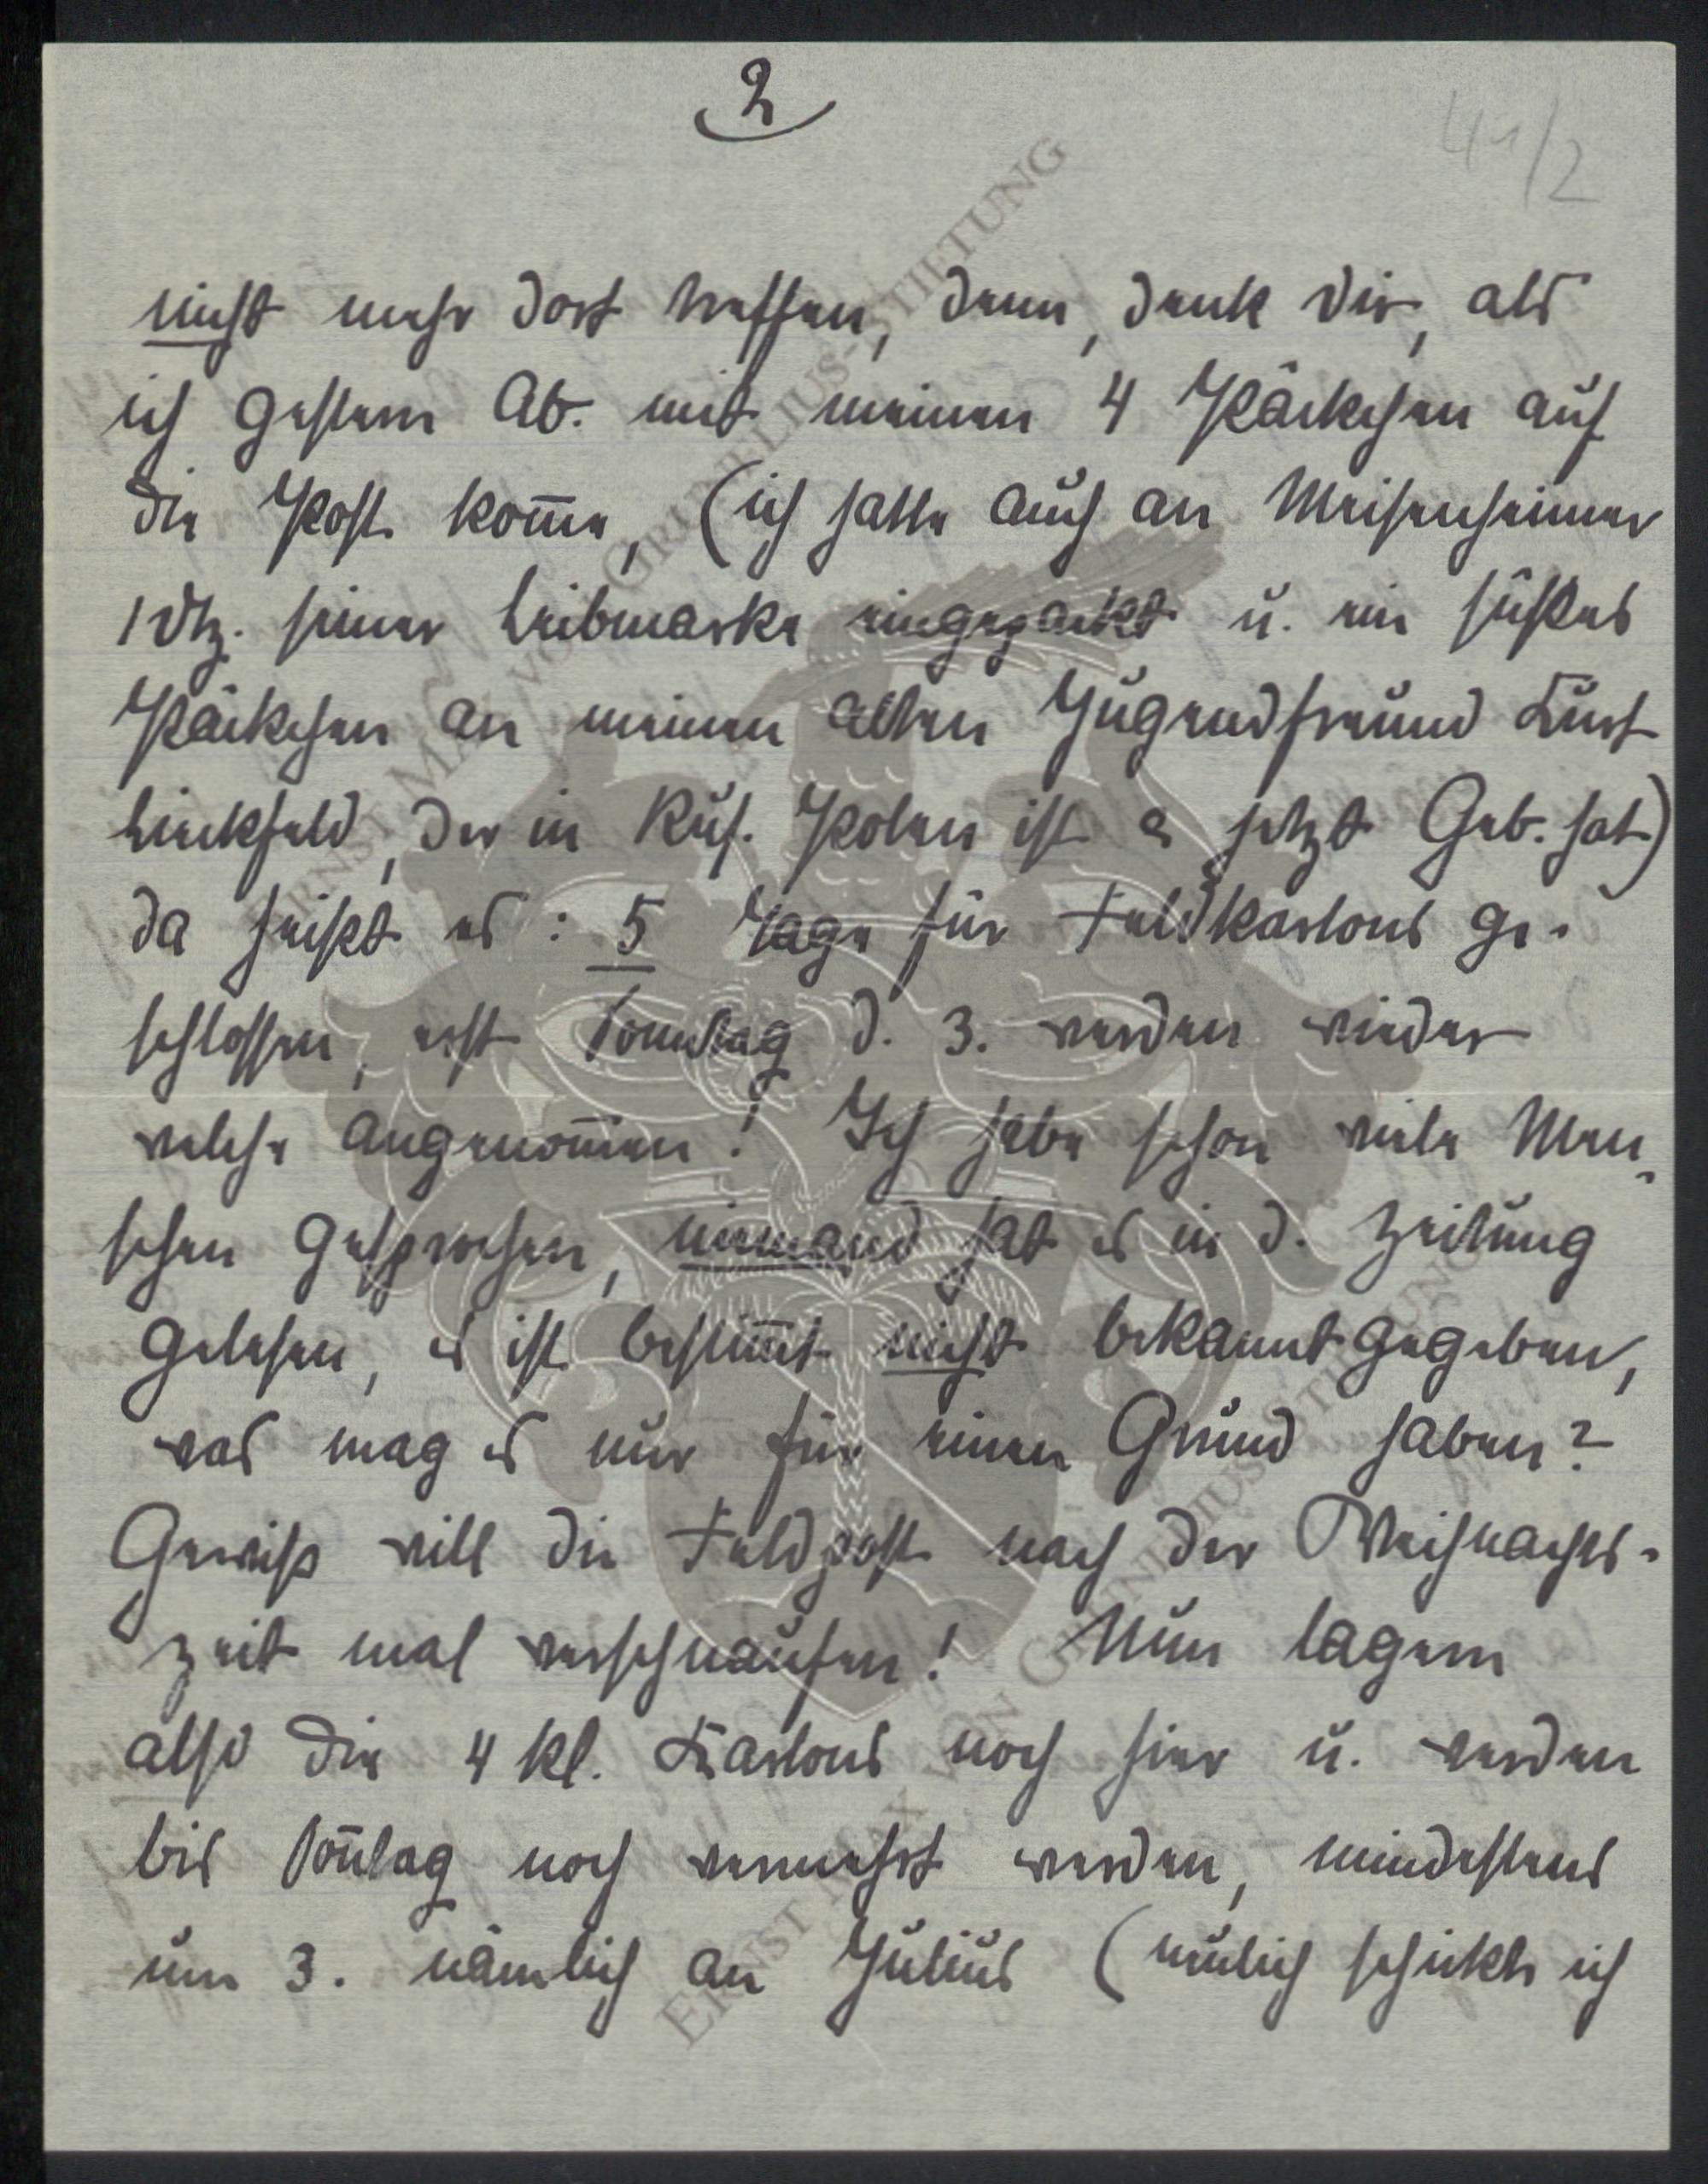 2
41/2
nicht mehr dort treffen, denn, denk Dir, als
ich gestern Ab. mit meinen 4 Päckchen auf
die Post kom̅e, (ich hatte auch an Meisenheimer
1 Dtz. seiner Leibmarke eingepackt u. ein süßes
Päckchen an meinen alten Jugendfreund Kurt
Linckfeld, der in Russ. Polen ist & jetzt Geb. hat)
da heißt es: 5 Tage für Feldkartons ge-
schlossen, erst Sonntag d. 3. werden wieder
welche angenom̅en! Ich habe schon viele Men-
schen gesprochen, niemand hat es in d. Zeitung
gelesen, es ist bestim̅t nicht bekannt gegeben,
was mag es nur für einen Grund haben?
Gewiß will die Feldpost nach der Weihnachts-
zeit mal verschnaufen! Nun lagern
also die 4 kl. Kartons noch hier u. werden
bis Son̅tag noch vermehrt werden, mindestens
um 3. nämlich an Julius (neulich schickte ich
ERNST MAX VON GRUNELIUS-STIFTUNG
ERNST MAX VON GRUNELIUS-STIFTUNG